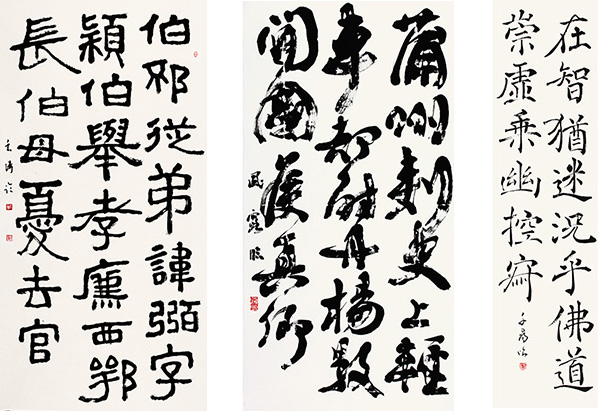 伯邪從弟諱弼字
穎伯舉孝廉西鄂
長伯母憂去官
蒲州刺史上輕
車都尉丹楊縣
開國侯真卿
在智猶迷況乎佛道
崇虛乘幽控寂